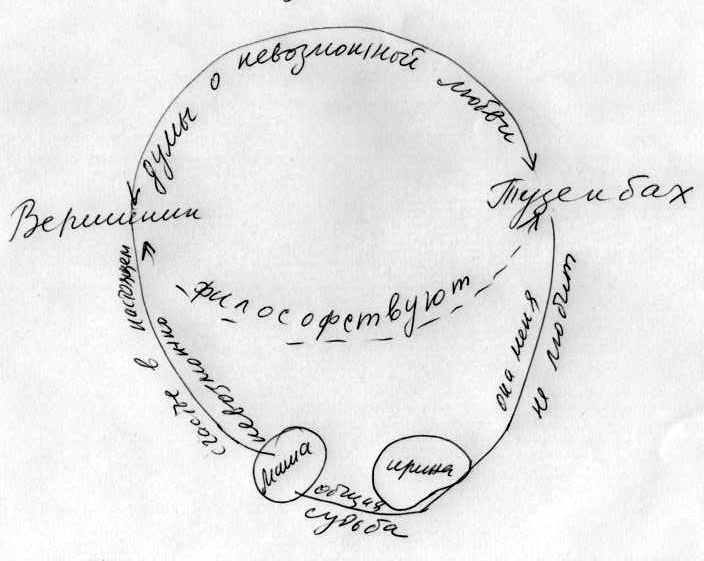 думы о невозможной любви
Вершинин
Тузенбах
философствуют
счастье в настоящем
невозможно
она меня
не любит
Маша
Ирина
общая
судьба